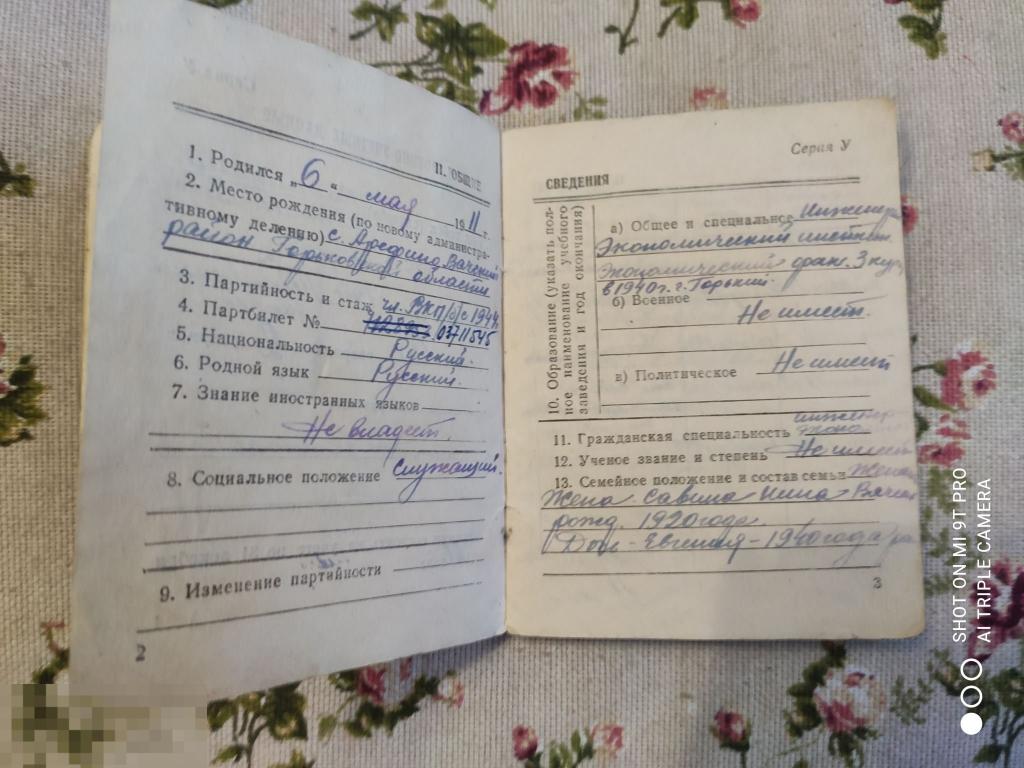 II. ОБЩИЕ
1. Родился „6“ мая 1911 г.
2. Место рождения (по новому администра-
тивному делению) с. Арефино Вачский
район Горьковской области
3. Партийность и стаж чл. ВКП/б/ с 1944
4. Партбилет № 03711545
5. Национальность Русский.
6. Родной язык Русский.
7. Знание иностранных языков
Не владеет.
8. Социальное положение Служащий.
9. Изменение партийности
2
Серия У
СВЕДЕНИЯ
10. Образование (указать пол-
ное наименование учебного
заведения и год окончания)
а) Общее и специальное Инженер
Экономический инстит.
экономический фак. 3 курс
в 1940 г. г. Горький.
б) Военное
Не имеет.
в) Политическое Не имеет
11. Гражданская специальность инженер
эконо
12. Ученое звание и степень Не имеет
13. Семейное положение и состав семьи Женат
Жена Савина Нина Вячес
рожд. 1920 года.
Дочь - Евгения - 1940 года
3
SHOT ON MI 9T PRO
AI TRIPLE CAMERA